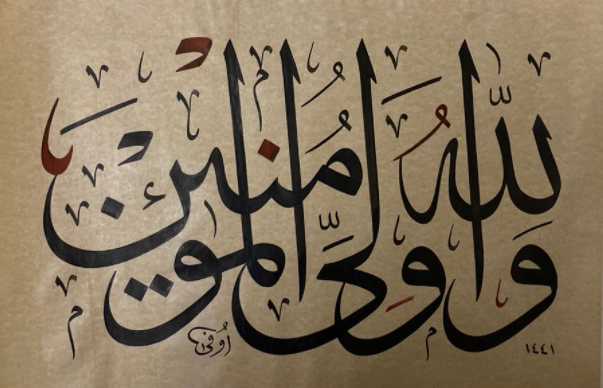 وَاللهُ وَلِيُّ الْمُؤْمِنِينَ
١٤٤١